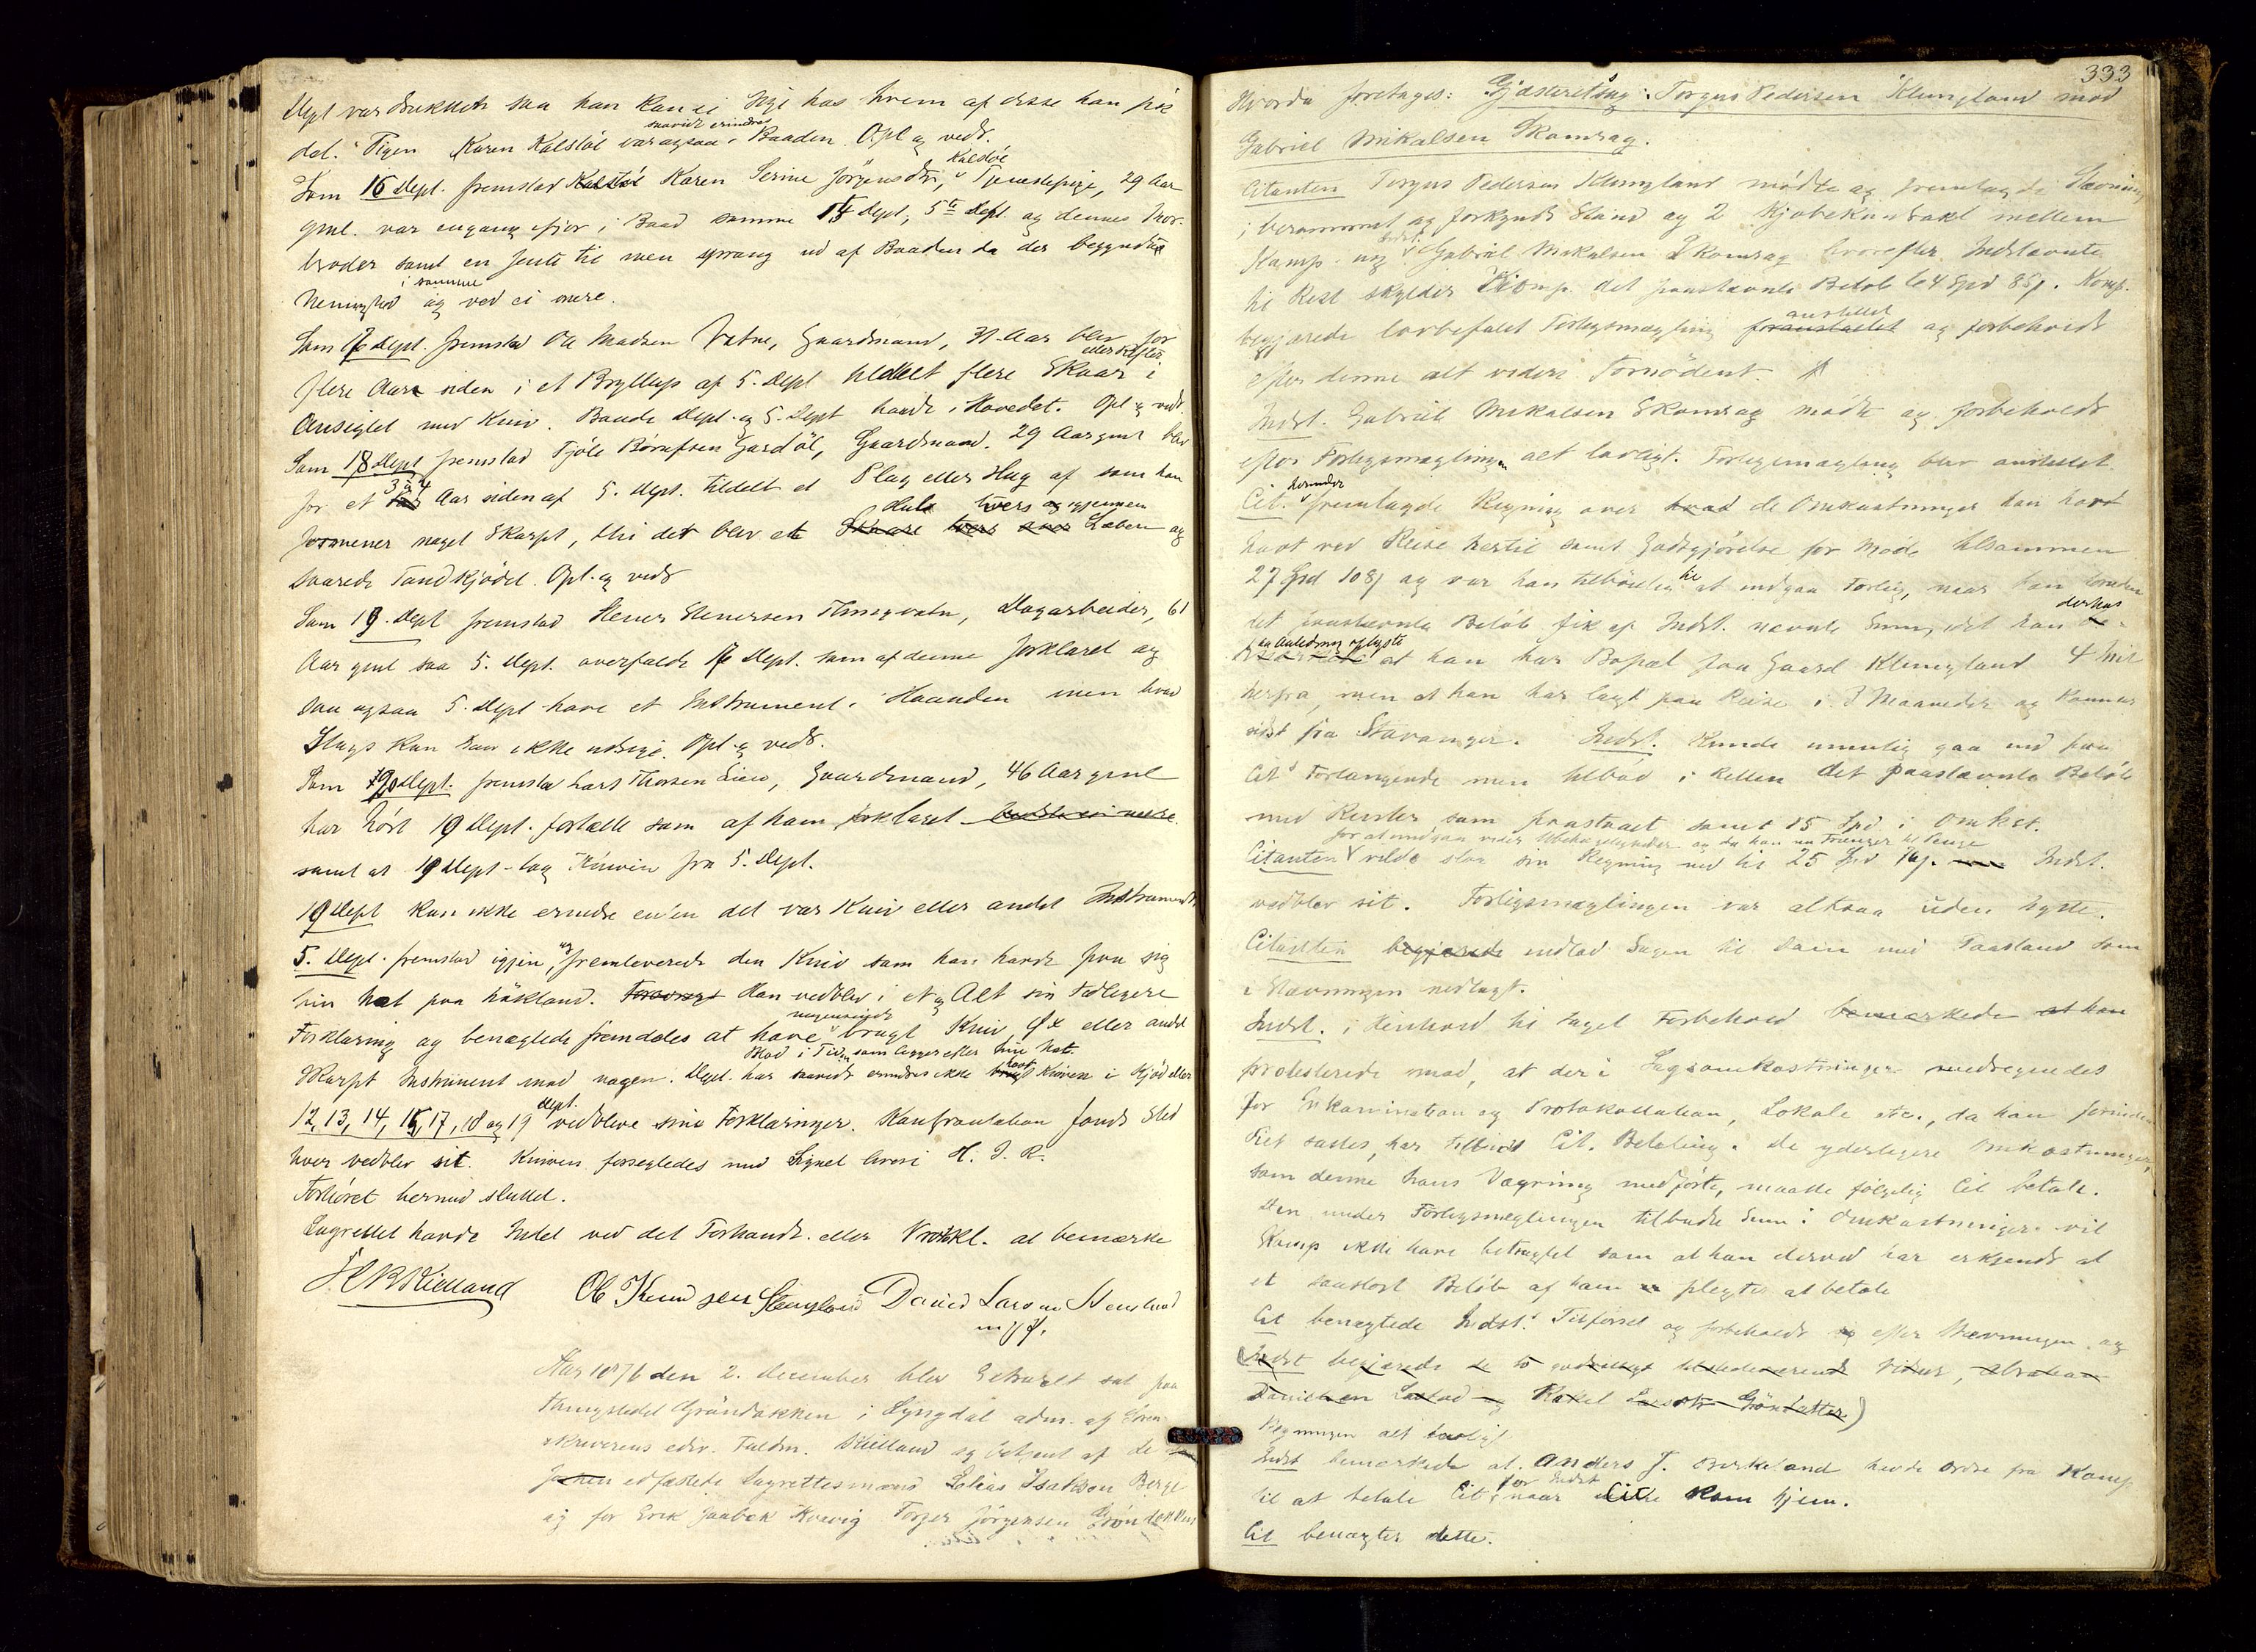 Dept var drukken saa han kan ei sige hos hvem af disse han fik
det. Pigen Karen Kalstøl var ogsaa saavidt erindres i Baaden. Opl og vedt.
Som 16 Dept. fremstod Karen Serine Jörgensdtr, Kalstøl Tjenestepige, 29 Aar
gml. var engang ifjor i Baad sammen 15 Dept, 5te Dept. og dennes Bro-
broder samt en Jente til men sprang ud af Baaden da der begyndte
Uenighed i samme og ved ei mere.
Som 17 Dept. fremstod Ole Madsen Vatne, Gaardmand, 31 Aar blev for
flere Aar siden i et Bryllup af 5. Dept tildelt flere Skaar eller Rifter i
Ansigtet med Kniv. Baade Dept. og 5. Dept havde i Hovedet. Opl og vedt.
Som 18 Dept fremstod Tjöle Börufsen Gardöl, Gaardmand. 29 Aar gml blev
for et 3 à 4 Aar siden af 5. Dept. tildelt et Slag eller Hug af som han
formener noget Skarpt, thi det blev et Hul tvers igjennem Læben og
saarede Tandkjödet. Opl. og vedt
Som 19. Dept fremstod Stener Stenersen Tingvatn, Dagarbeider, 61
Aar gml saa 5. Dept. overfalde 17 Dept. som af denne forklaret og
saa ogsaa 5. Dept have et Instrument i Haanden men hvad
Slags kan han ikke udsige. Opl og vedt.
Som 20 Dept. fremstod Lars Thorsen Lien, Gaardmand, 46 Aar gml
har hört 19 Dept. fortælle som af ham forklaret
samt at 19 Dept. tog Kniven fra 5. Dept.
19 Dept kan ikke erindre om det var Kniv eller andet Instrument
5. Dept. fremstod igjen, og fremleverede den Kniv som han havde paa sig
hin Nat paa Kökland. Han vedblev i et og Alt sin tidligere
Forklaring og benægtede fremdeles at have nogensinde brugt Kniv, Øx eller andet
skarpt Instrument mod nogen. Dept. har saavidt erindres ikke havt Kniven i Kjöd eller
Blod i Tiden som ligger efter hin Nat.
12, 13, 14, 16, 17, 18 og 19 Dept. vedbleve sine Forklaringer. Konfrontation fandt Sted
hver vedblev sit. Kniven forsegledes med Signet hvori H. J. R.
Forhöret hermed sluttet.
Lagrettet havde Intet ved det Forhandl. eller Protokl. at bemærke
Kielland Ole Knudsen Stengland David Larsen Stensland
m p P.
Aar 1876 den 2. December blev Extraret sat paa
Thingstedet Gröndokken i Lyngdal adm. af Soren-
skriverens edsv. Fuldm. Kielland og betjent af de
edfæstede Lagrettesmænd Tobias Isaksen Berge
og for Erik Jaabek Kvavig Torger Jörgensen Gröndokken
333
Hvorda foretages: Gjæsteretssag: Torgus Pedersen Klungland mod
Gabriel Mikalsen Skomrag.
Citanten Torgus Pedersen Klungland mødte og fremlagde Stævning
i berammet og forkyndt Stand og 2 Kjøbekontrakt mellem
Komp. og Indst. Gabriel Mikalsen Skomrag hvorefter Indstævnte
til Rest skylder Komp. det paastævnte Beløb 164 Spd 85 s. Komp.
begjærede lovbefalet Forligsmægling anstillet og forbeholdt
efter denne alt videre Fornödent.
Indst. Gabriel Mikalsen Skomrag mødte og forbeholdt
efter Forligsmæglingen alt lovligt. Forligsmægling blev anstillet
Cit. herunder fremlagde Regning over de Omkostninger han
havt ved Reise hertil samt Godtgjörelse for Møde tilsammen
27 Spd 108 s og var han tilböielig til at indgaa Forlig, naar han foruden
det paastævnte Beløb fik af Indst. nævnte Sum, idet han derhos
i Anledning oplyste at han har Bopæl paa Gaard Klungland 4 Mil
herfra, men at han har lagt paa Reise i 3 Maaneder og kommer
sidst fra Stavanger. Indst. kunde umulig gaa ind paa
Cits Forlangende men tilbød i Retten det paastævnte Beløb
med Renter som paastaaet samt 15 Spd i Omkst.
Citanten for at undgaa videre Ubehageligheder og da han nu trænger til Penge vilde slaa sin Regning ned til 25 Spd Indst.
vedblev sit. Forligsmæglingen var altsaa uden Nytte.
Citanten indlod Sagen til Dom med Paastand som
i Stævningen nedlagt.
Indst. i Henhold til taget Forbehold
protesterede mod, at der i Sagsomkostninger medregnedes
for Inkamination og Protokollation, Lokale etc., da han forinden
Ret sattes, har tilbudt Cit. Betaling. De yderligere Omkostninger,
som denne hans Vægring medførte, maatte følgelig Cit betale.
Den under Forligsmæglingen tilbudte Sum i Omkostninger vil
Komp ikke have betragtet som at han derved har erkjendt at
et saastort Beløb af ham pligtes at betale
Cit benægtede Indst. Tilførsel og forbeholdt efter Stævningen og
Indst begjærede de to godvilligt tilstedeværende Vidner, Abraham
Danielsen Lastad og Rakel Larsdtr Gröndokken)
Regningen alt lovligt
Indst bemærkede at Anders J. Birkeland havde Ordre fra Komp
til at betale Cit for Indst naar Citte kom hjem.
Cit benægter dette.